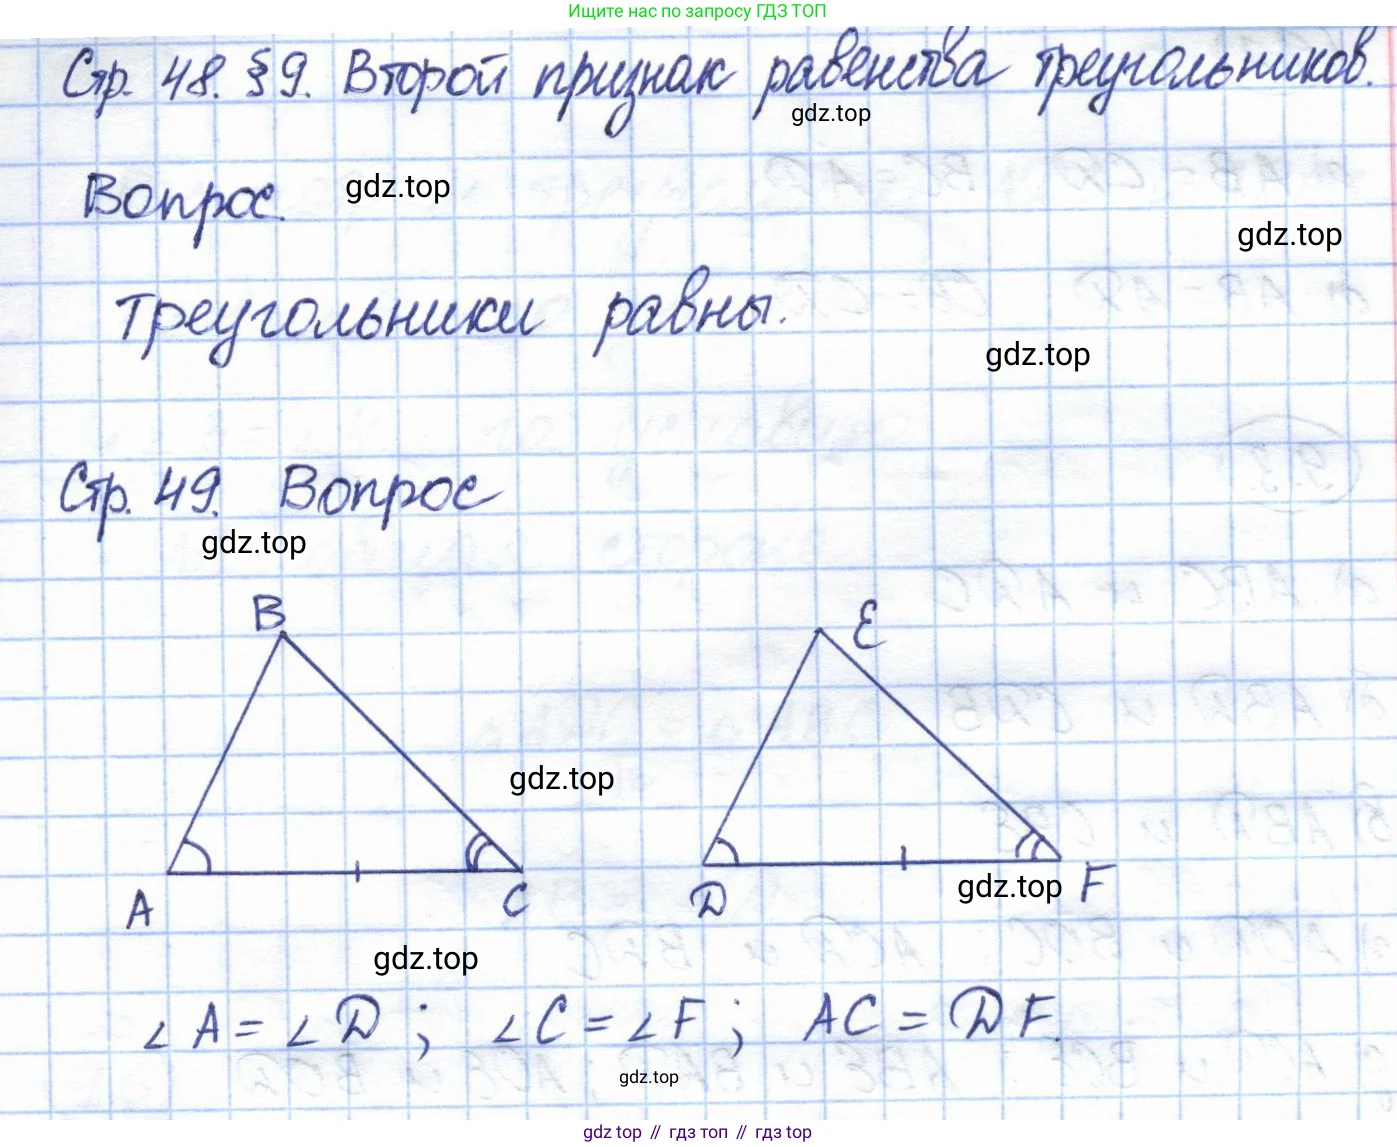 Ищите нас по запросу ГДЗ ТОП
Стр. 48. § 9. Второй признак равенства треугольников.
gdz.top
Вопрос.
gdz.top
gdz.top
Треугольники равны.
gdz.top
Стр. 49. Вопрос
gdz.top
B
E
gdz.top
A
C
D
gdz.top
F
gdz.top
∠A = ∠D; ∠C = ∠F; AC = DF.
gdz.top
gdz top // гдз топ // гдз top